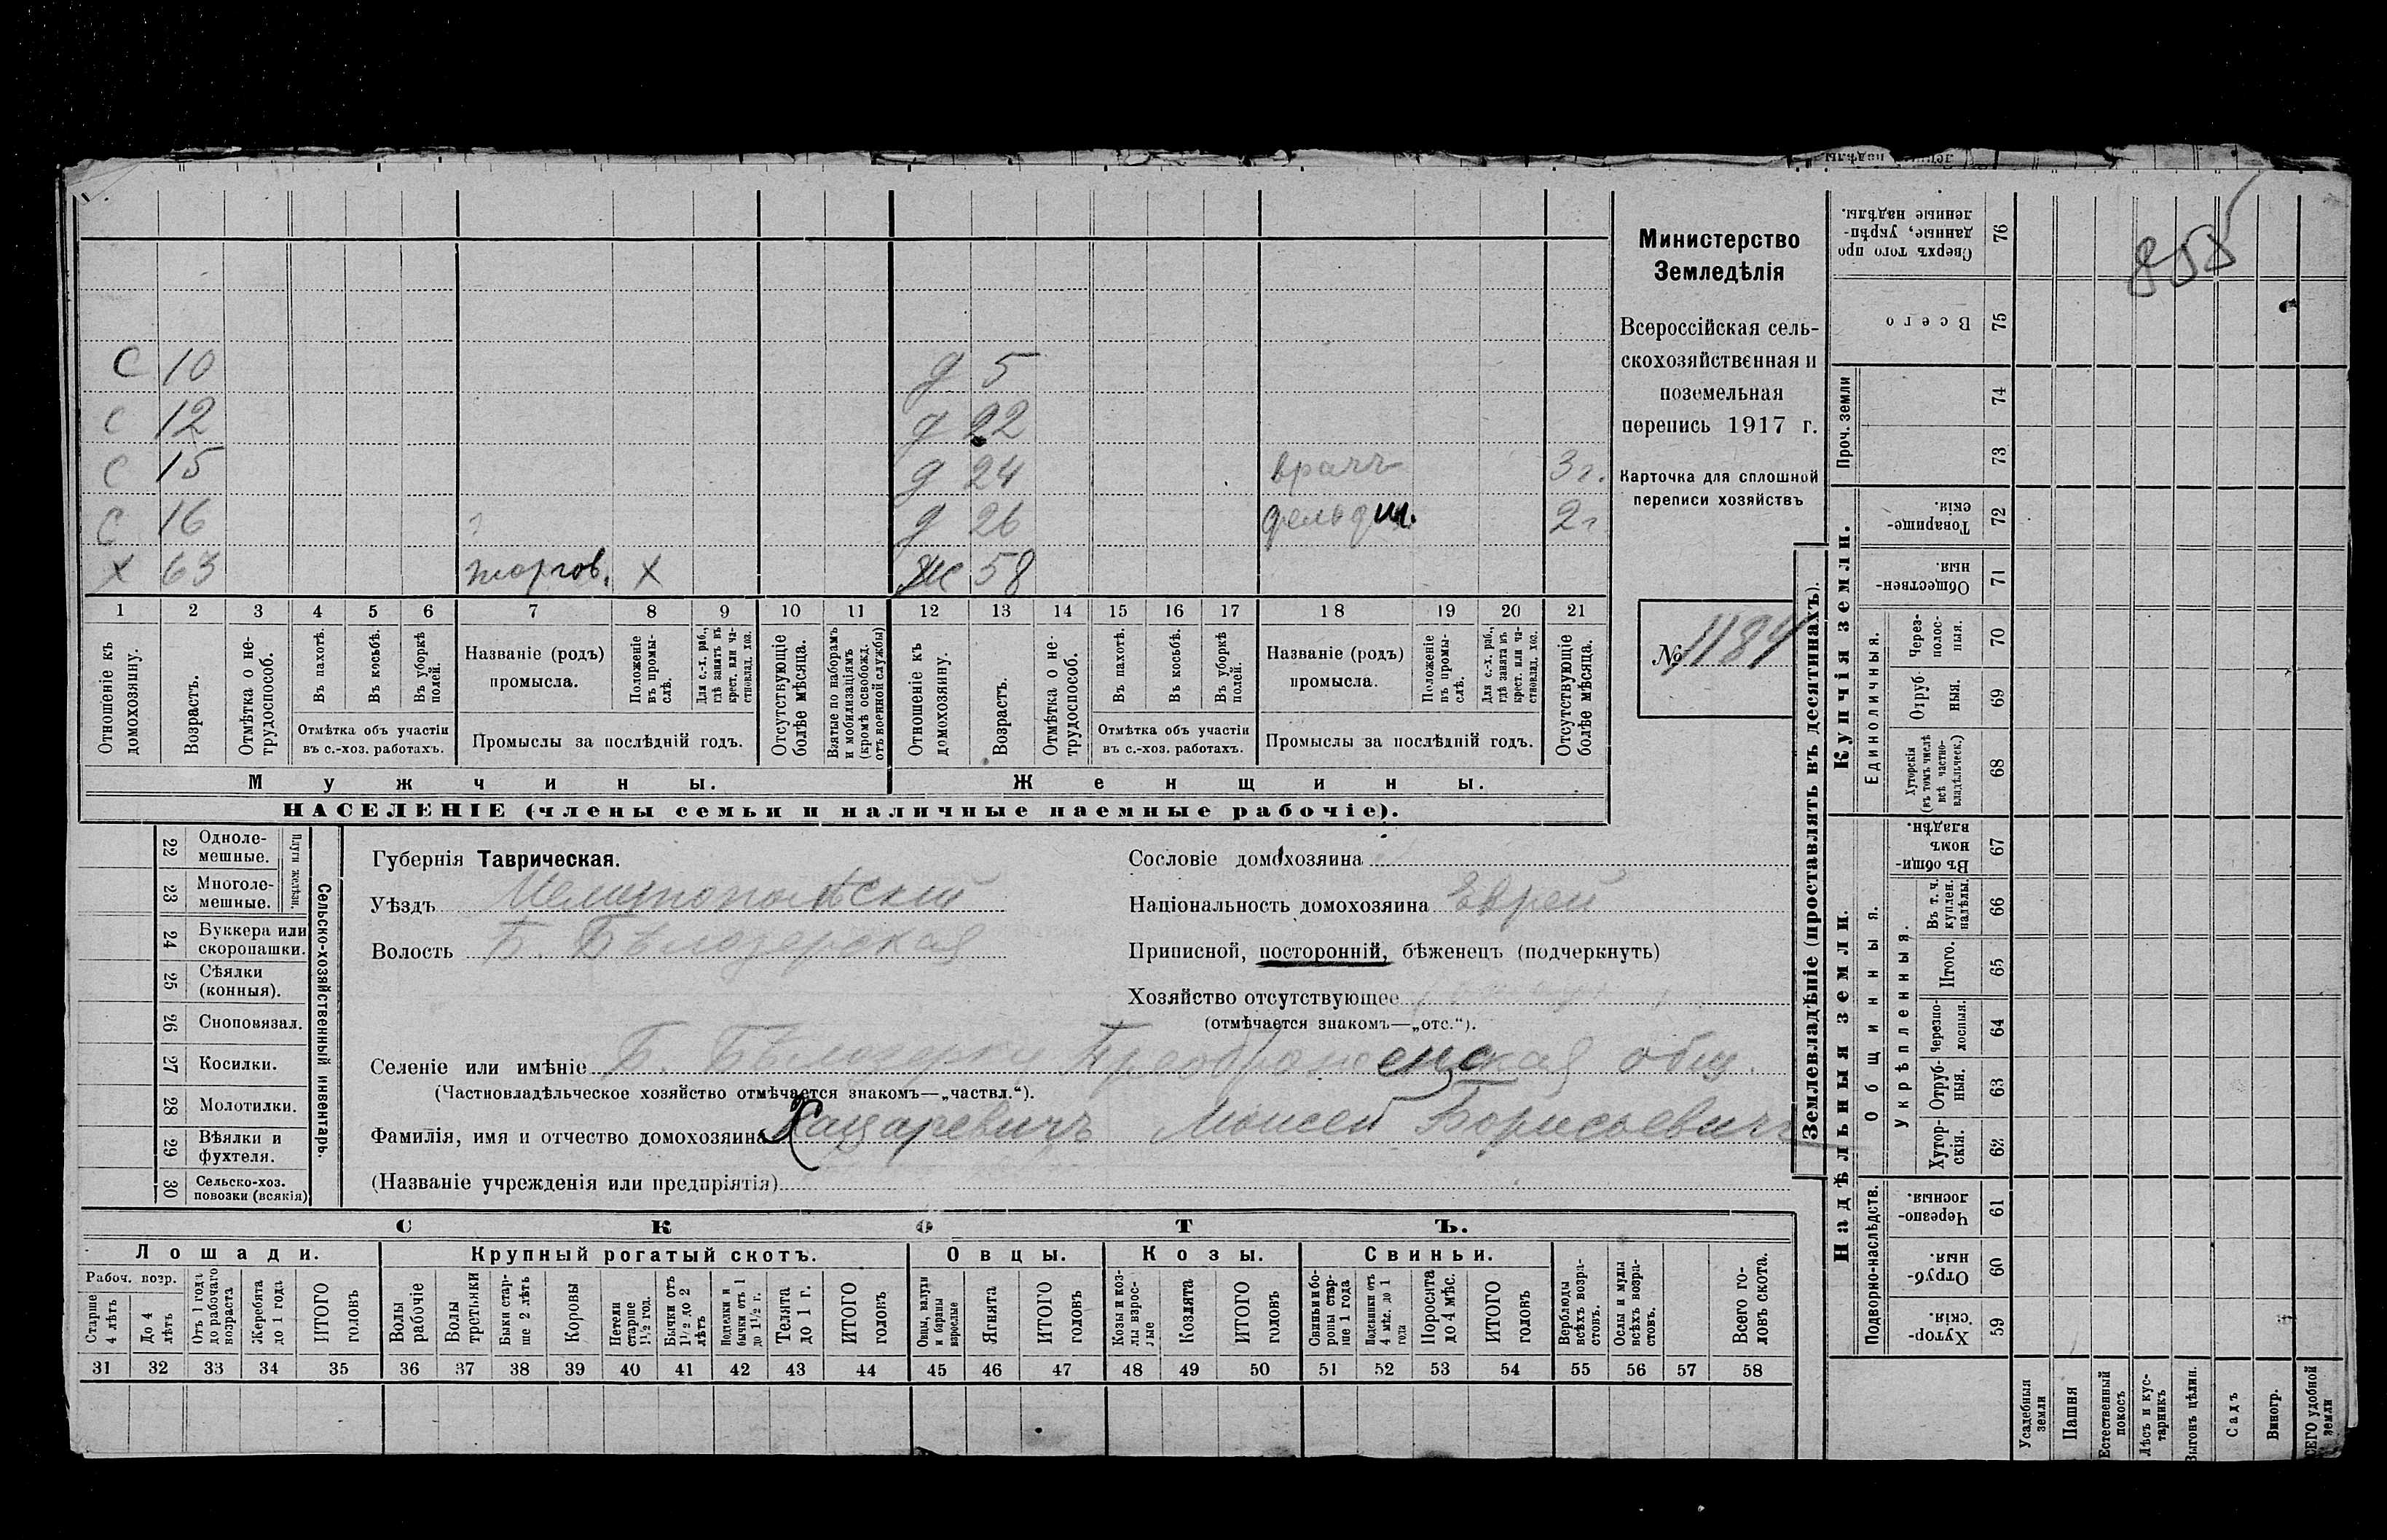 855
С 10
д 5
С 12
д 22
С 15
д 24 врачъ 3 г.
С 16
д 26 фельдш. 2 г
Х 63 торгов. Х
Ж 58
1 2 3 4 5 6 7 8 9 10 11 12 13 14 15 16 17 18 19 20 21
Отношеніе къ домохозяину.
Возрастъ.
Отмѣтка о нетрудоспособ.
Въ пахотѣ.
Въ косьбѣ.
Въ уборкѣ полей.
Отмѣтка объ участіи въ с.-хоз. работахъ.
Названіе (родъ) промысла.
Положеніе въ промыслѣ.
Для с.-х. раб., гдѣ занятъ въ крест. или частновлад. хоз.
Промыслы за послѣдній годъ.
Отсутствующіе болѣе мѣсяца.
Взятые по наборамъ и мобилизаціямъ (кромѣ освобожд. отъ военной службы)
Отношеніе къ домохозяину.
Возрастъ.
Отмѣтка о нетрудоспособ.
Въ пахотѣ.
Въ косьбѣ.
Въ уборкѣ полей.
Отмѣтка объ участіи въ с.-хоз. работахъ.
Названіе (родъ) промысла.
Положеніе въ промыслѣ.
Для с.-х. раб., гдѣ занята въ крест. или частновлад. хоз.
Промыслы за послѣдній годъ.
Отсутствующіе болѣе мѣсяца.
Мужчины.
Женщины.
НАСЕЛЕНІЕ (члены семьи и наличные наемные рабочіе).
Министерство
Земледѣлія
Всероссійская сель-
скохозяйственная и
поземельная
перепись 1917 г.
Карточка для сплошной
переписи хозяйствъ
№ 1184
22 Одноле-
мешные.
23 Многоле-
мешные.
Плуги желѣзн.
24 Буккера или
скоропашки.
25 Сѣялки
(конныя).
26 Сноповязал.
27 Косилки.
28 Молотилки.
29 Вѣялки и
фухтеля.
30 Сельско-хоз.
повозки (всякія)
Сельско-хозяйственный инвентарь.
Губернія Таврическая.
Уѣздъ Мелитопольскій
Волость Б. Бѣлозерская
Сословіе домохозяина
Національность домохозяина Еврей
Приписной, посторонній, бѣженецъ (подчеркнуть)
Хозяйство отсутствующее
(отмѣчается знакомъ—„отс.“).
Селеніе или имѣніе Б. Бѣлозерка, Преображенская общ.
(Частновладѣльческое хозяйство отмѣчается знакомъ—„частвл.“).
Фамилія, имя и отчество домохозяина Хацаревичъ Моисей Борисьевичъ
(Названіе учрежденія или предпріятія)
СКОТЪ.
Лошади. Крупный рогатый скотъ. Овцы. Козы. Свиньи.
Рабоч. возр.
Старше 4 лѣтъ
До 4 лѣтъ
Отъ 1 года до рабочаго возраста
Жеребята до 1 года
ИТОГО головъ
Волы рабочіе
Волы третьяки
Быки старше 2 лѣтъ
Коровы
Нетели старше 1½ год.
Бычки отъ 1½ до 2 лѣтъ
Нодѣлки и бычки отъ 1 до 1½ г.
Телята до 1 г.
ИТОГО головъ
Овцы, валухи и бараны взрослые
Ягнята
ИТОГО головъ
Козы и козлы взрослые
Козлята
ИТОГО головъ
Свиньи и боровы старше 1 года
Подсвинки отъ 4 мѣс. до 1 года
Поросята до 4 мѣс.
ИТОГО головъ
Верблюды всѣхъ возрастовъ.
Ослы и мулы всѣхъ возрастовъ.
Всего головъ скота.
31 32 33 34 35 36 37 38 39 40 41 42 43 44 45 46 47 48 49 50 51 52 53 54 55 56 57 58
Землевладѣніе (проставлять въ десятинахъ).
Надѣльныя земли.
Купчія земли.
Проч. земли
Подворно-наслѣдств.
Общинныя.
Укрѣпленныя.
Единоличныя.
Хуторскія. 59
Отрубныя. 60
Черезполосныя. 61
Хуторскія. 62
Отрубныя. 63
Черезполосныя. 64
Итого. 65
Въ т. ч. куплен. надѣлы. 66
Въ общинномъ владѣн. 67
Хуторскія (въ томъ числѣ всѣ частновладѣльческ.) 68
Отрубныя. 69
Черезполосныя. 70
Общественныя. 71
Товарищескія. 72
73
74
Всего 75
Сверхъ того проданные, укрѣпленные надѣлы. 76
Усадебныя земли
Пашня
Естественный покосъ
Лѣсъ и кустарникъ
Выгонъ цѣлин.
Садъ
Виногр.
ВСЕГО удобной земли